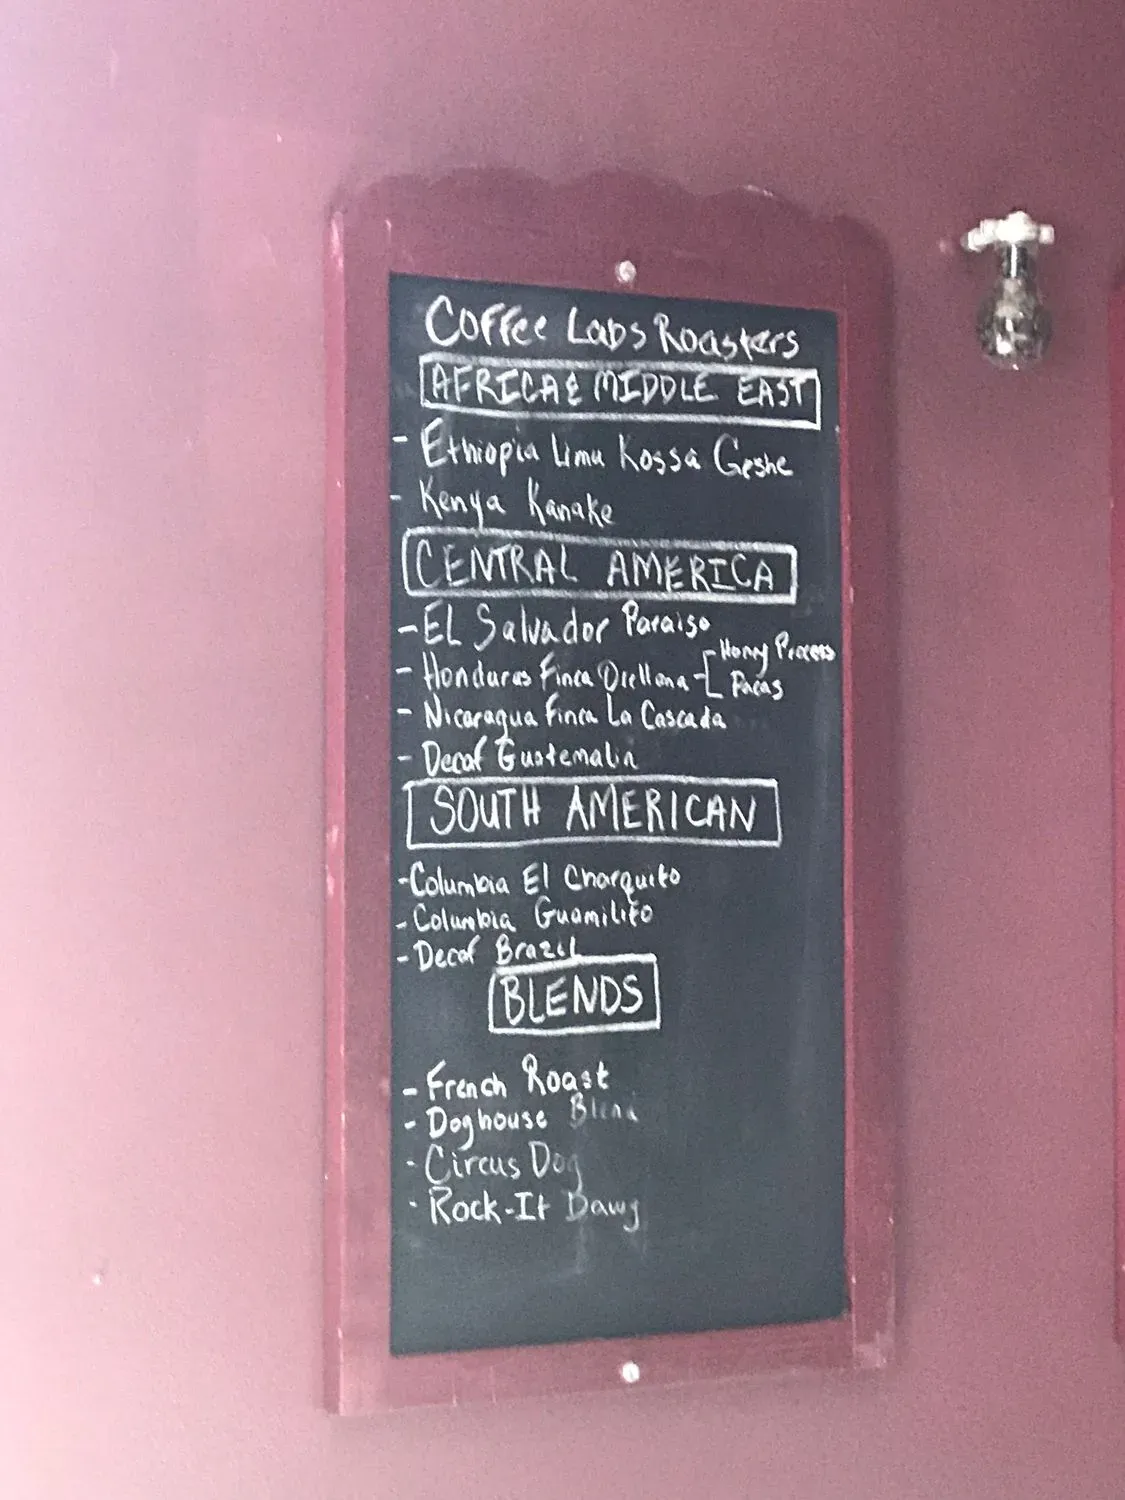 Coffee Labs Roasters
AFRICA & MIDDLE EAST
- Ethiopia Limu Kossa Geshe
- Kenya Kanake
CENTRAL AMERICA
- EL Salvador Paraiso
- Honduras Finca Orellana - Honey Process
Pacas
- Nicaragua Finca La Cascada
- Decaf Guatemalia
SOUTH AMERICAN
- Columbia El Charquito
- Columbia Guamilito
- Decaf Brazil
BLENDS
- French Roast
- Doghouse Blend
- Circus Dog
- Rock-It Dawg